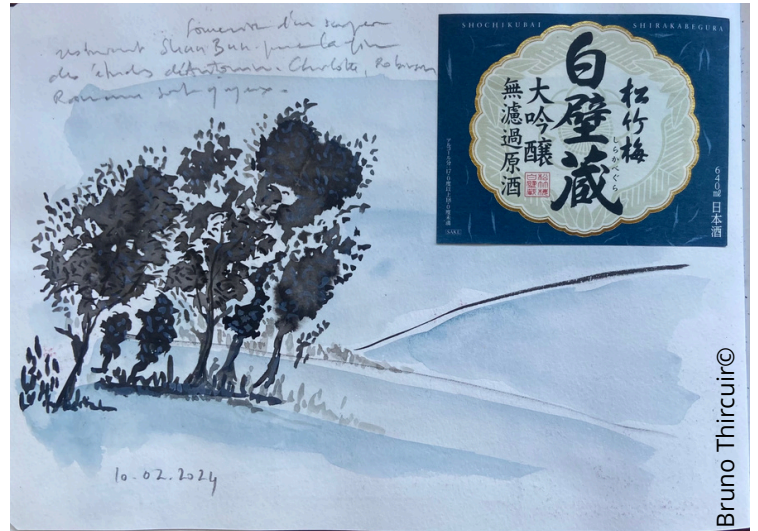 Souvenir d'un souper
restaurant Shan Bun pour la fin
des études d'Antonin. Charlotte, Robinson
Romane sont
10.02.2024
SHOCHIKUBAI
SHIRAKABEGURA
松竹梅
白壁蔵
しらかべぐら
大吟醸
無濾過原酒
640ml 日本酒
Bruno Thircuir©